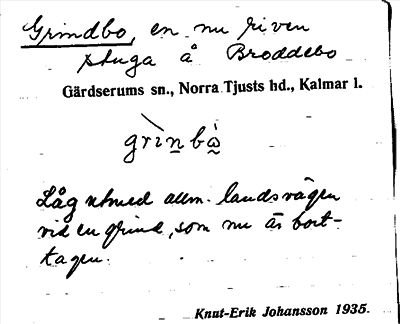 Grindbo, en nu riven
stuga å Broddebo
Gärdserums sn., Norra Tjusts hd., Kalmar l.
grìn̲bὰ̲
Låg utmed allm. landsvägen
vid en grind, som nu är bort-
tagen.
Knut-Erik Johansson 1935.